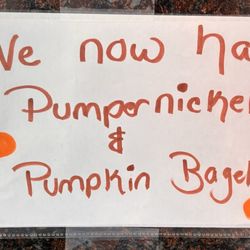 We now ha
Pumpernickel
&
Pumpkin Bagel